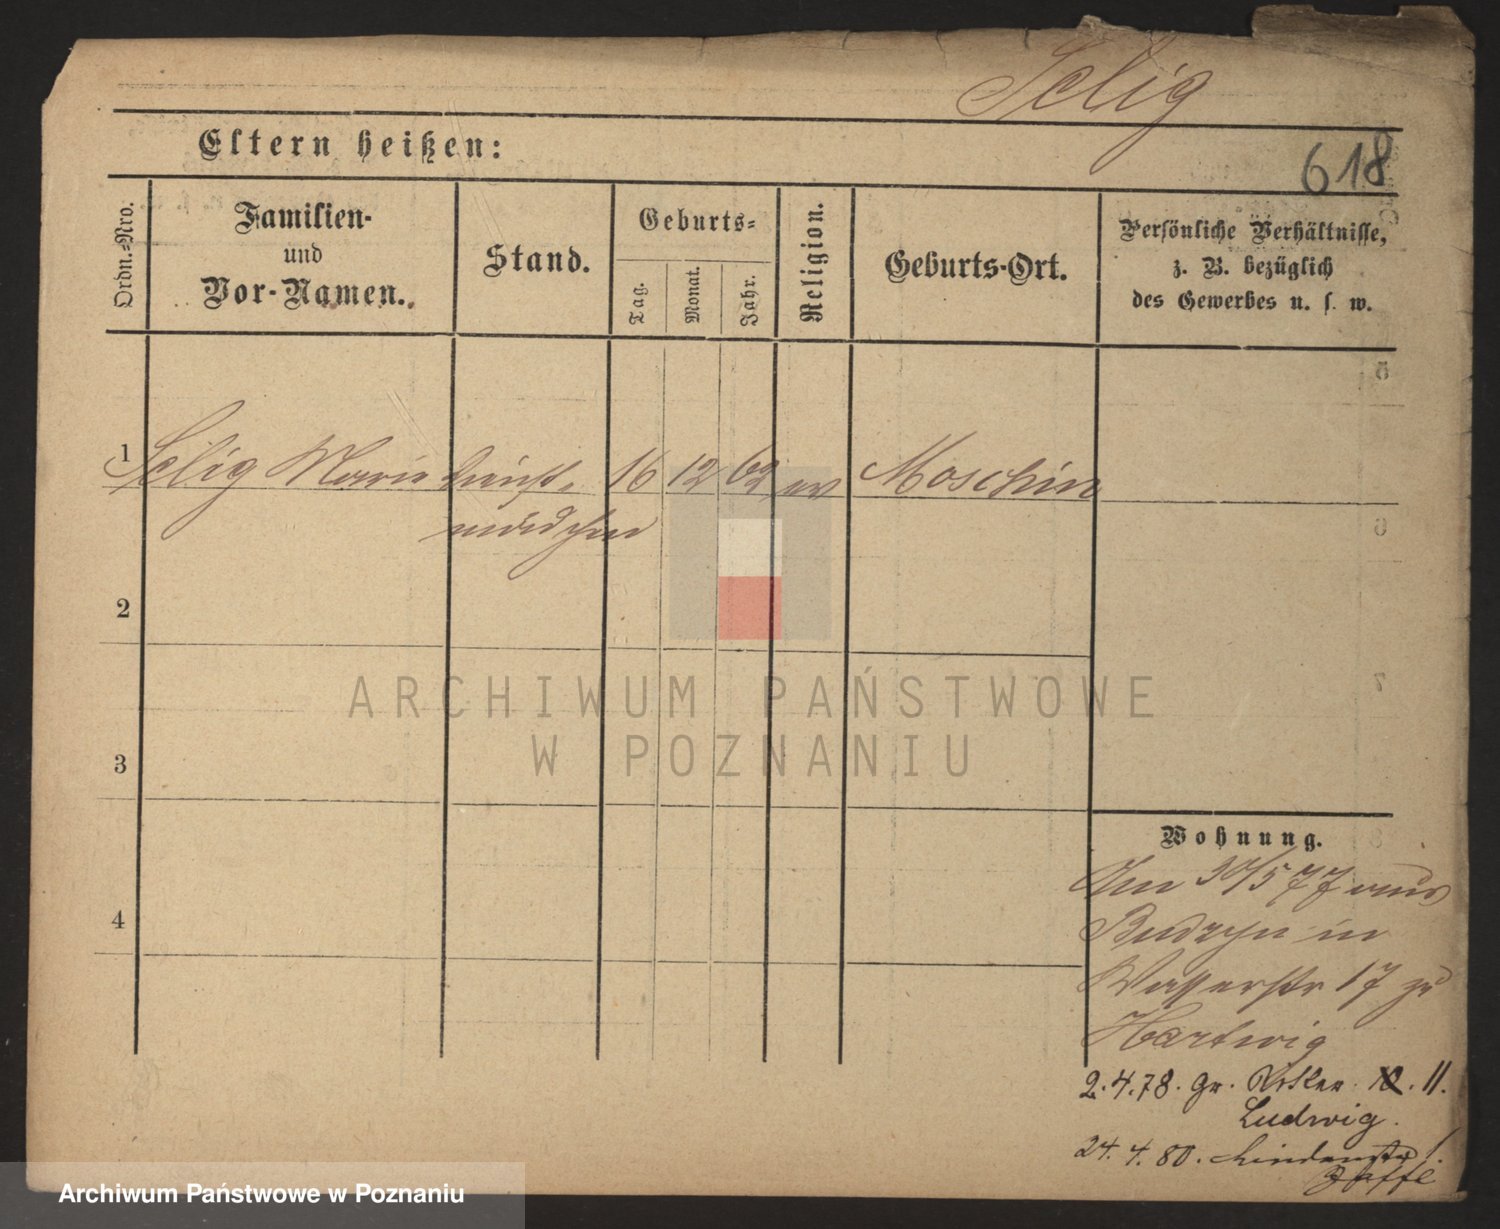 Selig
618
Eltern heißen:
Ordn.-Nro.
Familien-
und
Vor-Namen.
Stand.
Geburts-
Tag.
Monat.
Jahr.
Religion.
Geburts-Ort.
Persönliche Verhältnisse,
z. B. bezüglich
des Gewerbes u. s. w.
1 Selig Marie Dienst- 16 12 62 ev Moschin
mädchen
2
3
4
ARCHIWUM PAŃSTWOWE
W POZNANIU
Wohnung.
Am 30/5 77 aus
Budzyn in
Wasserstr 17 zu
Hartwig
2.4.78. Gr. 11.
Ludwig.
24.4.80. Lindenstr 1.
Jaffe
Archiwum Państwowe w Poznaniu